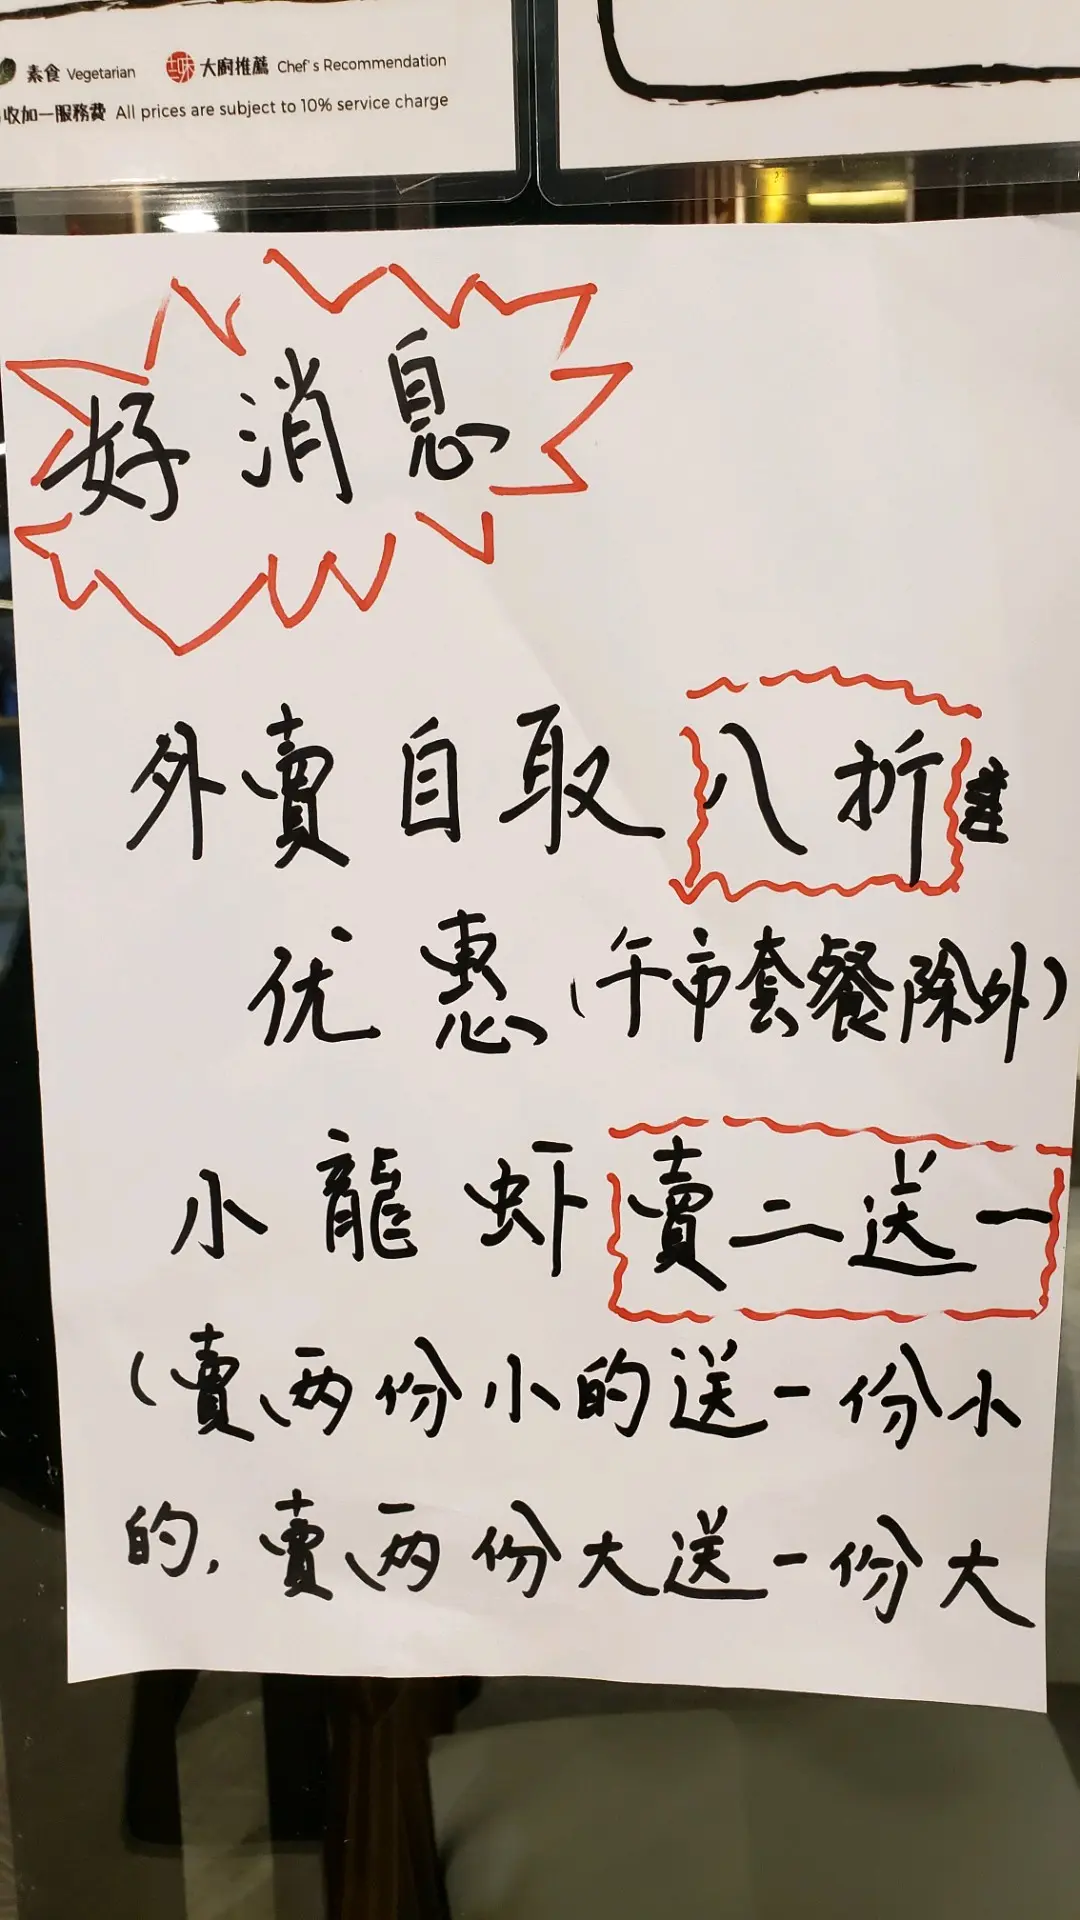 素食 Vegetarian 大廚推薦 Chef's Recommendation
收加一服務費 All prices are subject to 10% service charge
好消息
外賣自取八折
优惠(午市套餐除外)
小龍虾賣二送一
(賣两份小的送一份小
的,賣两份大送一份大